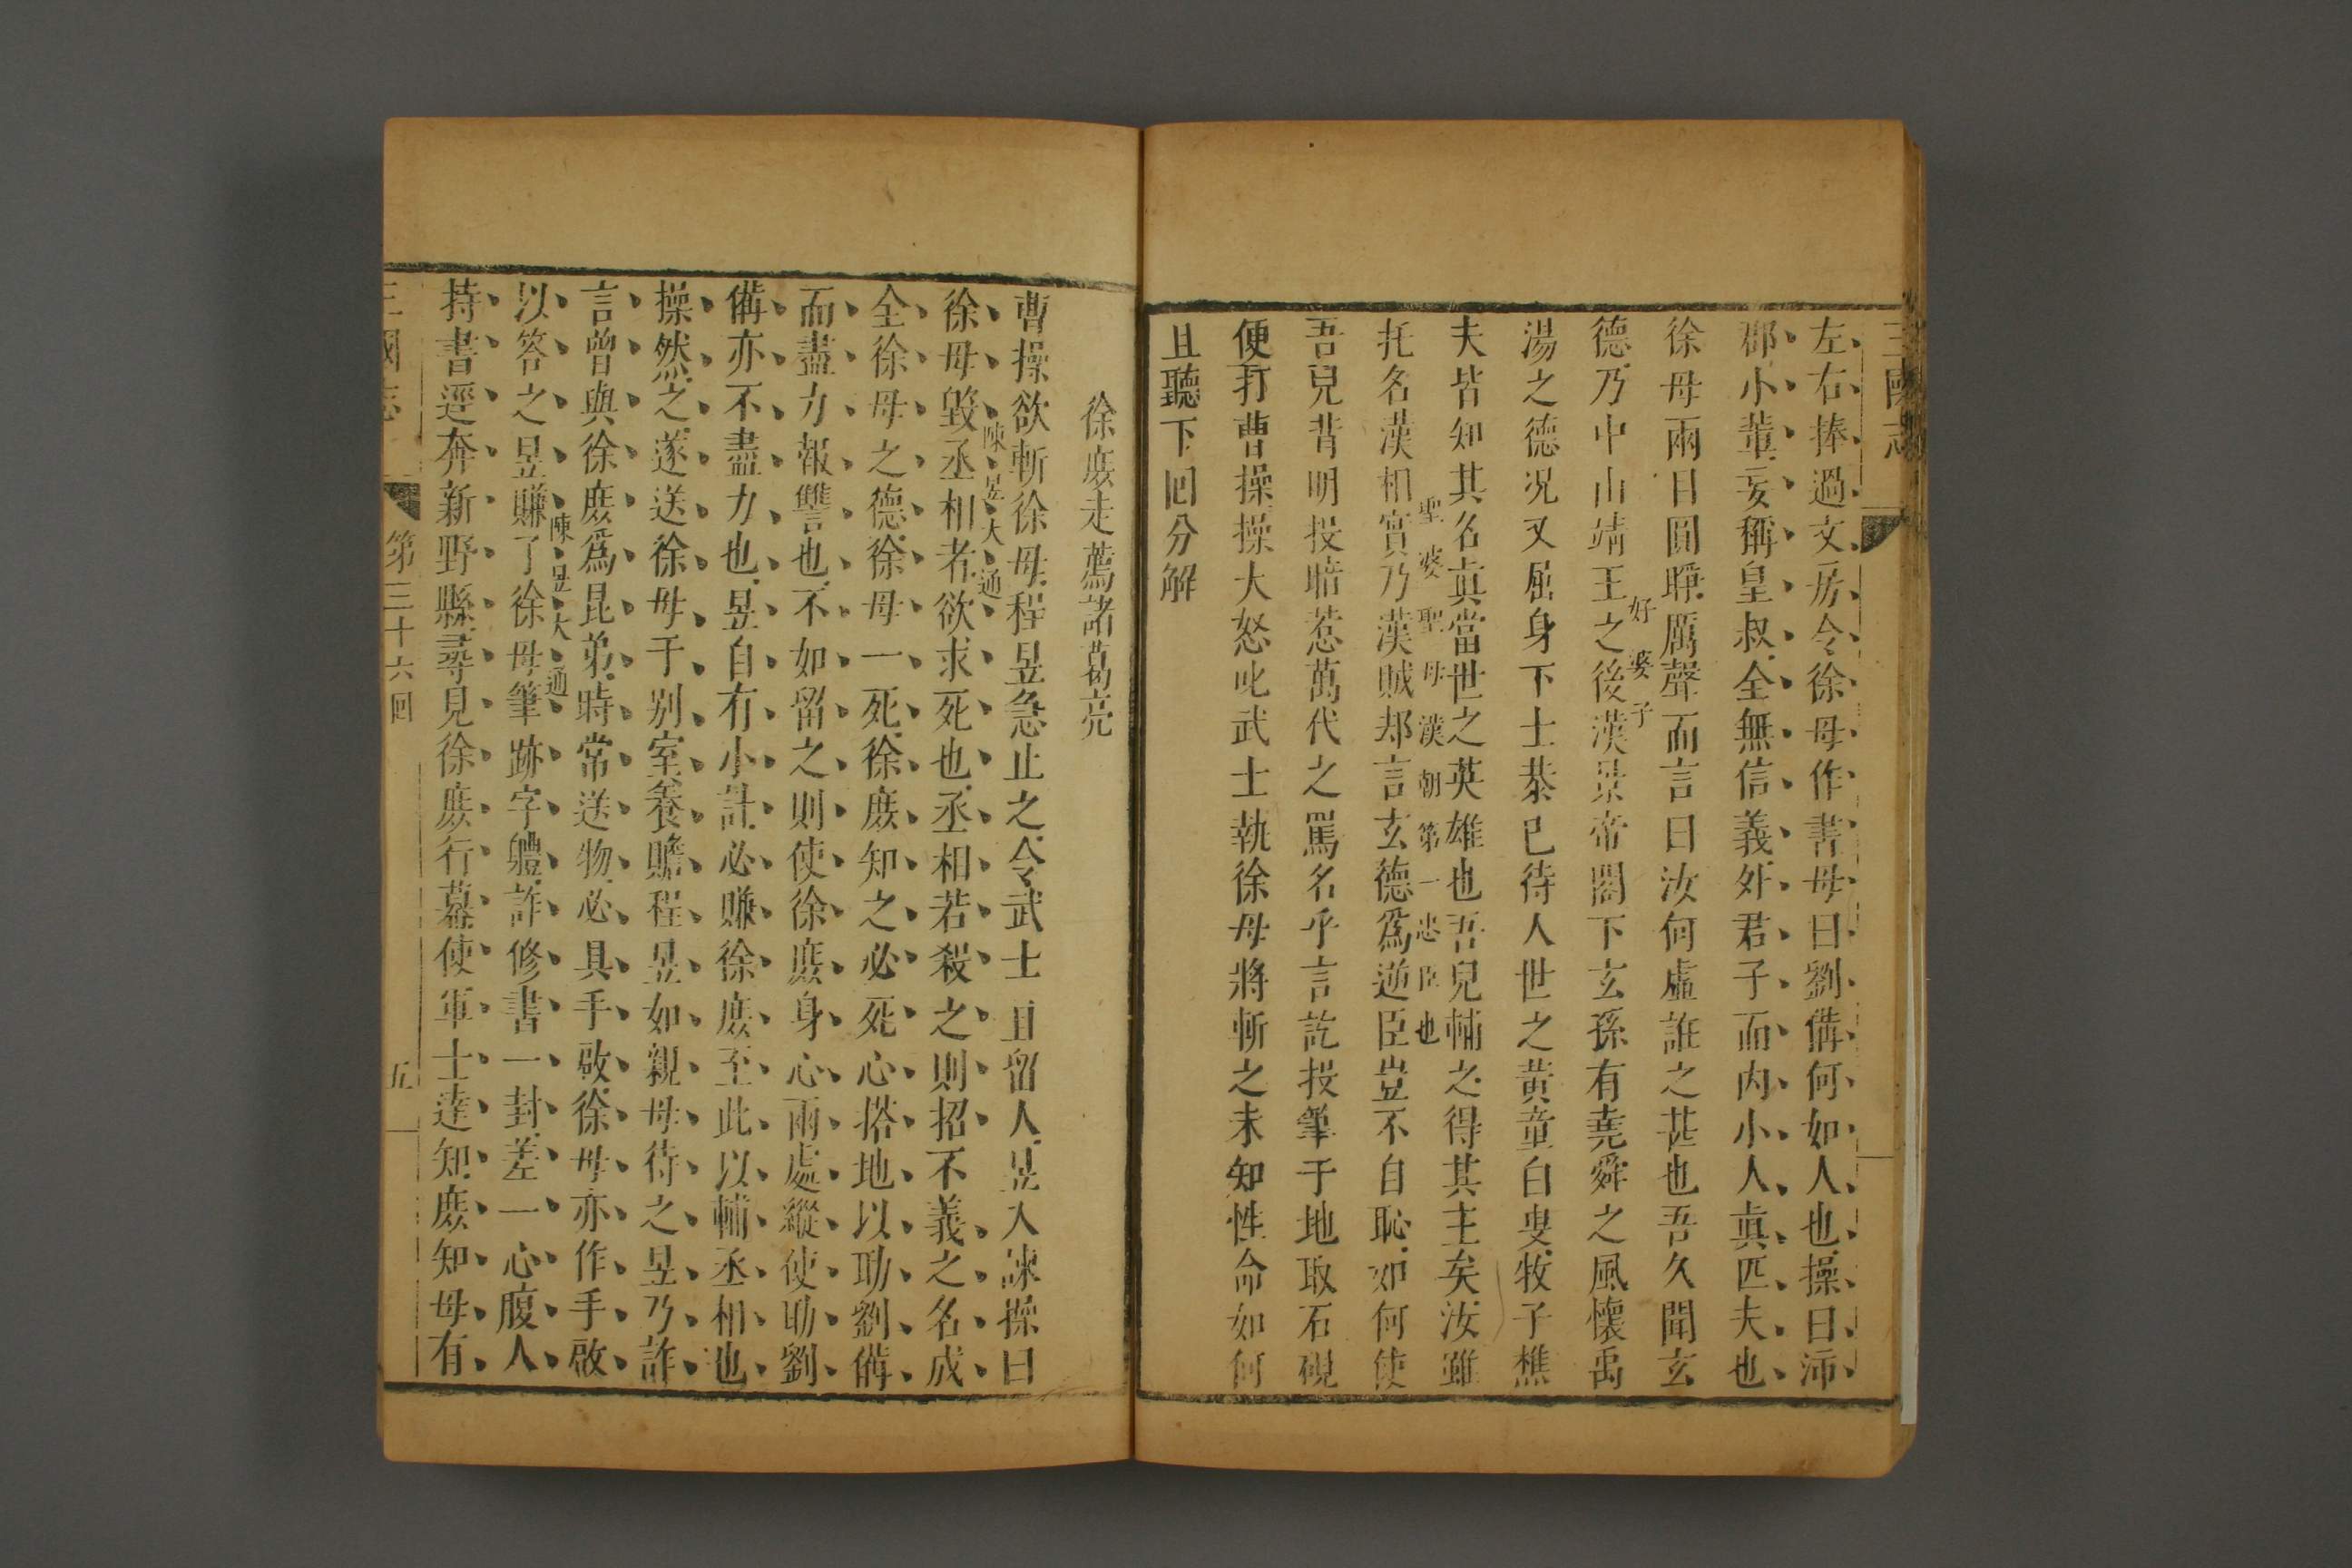 三國志
左右捧過文房令徐母作書母曰劉備何如人也操曰沛
郡小輩妄稱皇叔全無信義外君子而內小人眞匹夫也
徐母兩目圓睜厲聲而言曰汝何虛誑之甚也吾久聞玄
好婆子
德乃中山靖王之後漢景帝閣下玄孫有堯舜之風懷禹
湯之德况又屈身下士恭己待人世之黃童白叟牧子樵
夫皆知其名眞當世之英雄也吾兒輔之得其主矣汝雖
聖婆聖母漢朝第一忠臣也
托名漢相實乃漢賊却言玄德爲逆臣豈不自恥如何使
吾兒背明投暗惹萬代之罵名乎言訖投筆于地取石硯
便打曹操操大怒叱武士執徐母將斬之未知性命如何
且聽下回分解
徐庶走薦諸葛亮
曹操欲斬徐母程昱急止之令武士且留人昱入諫操曰
陳昱大通
徐母毀丞相者欲求死也丞相若殺之則招不義之名成
全徐母之德徐母一死徐庶知之必死心搭地以助劉備
而盡力報讐也不如留之則使徐庶身心兩處縱使助劉
備亦不盡力也昱自有小計必賺徐庶至此以輔丞相也
操然之遂送徐母于别室養贍程昱如親母待之昱乃詐
言曾與徐庶爲昆弟時常送物必具手啟徐母亦作手啟
陳昱大通
以答之昱賺了徐母筆跡字軆詐修書一封差一心腹人
持書逕奔新野縣尋見徐庶行幕使軍士達知庶知母有
三國志
第三十六回
五